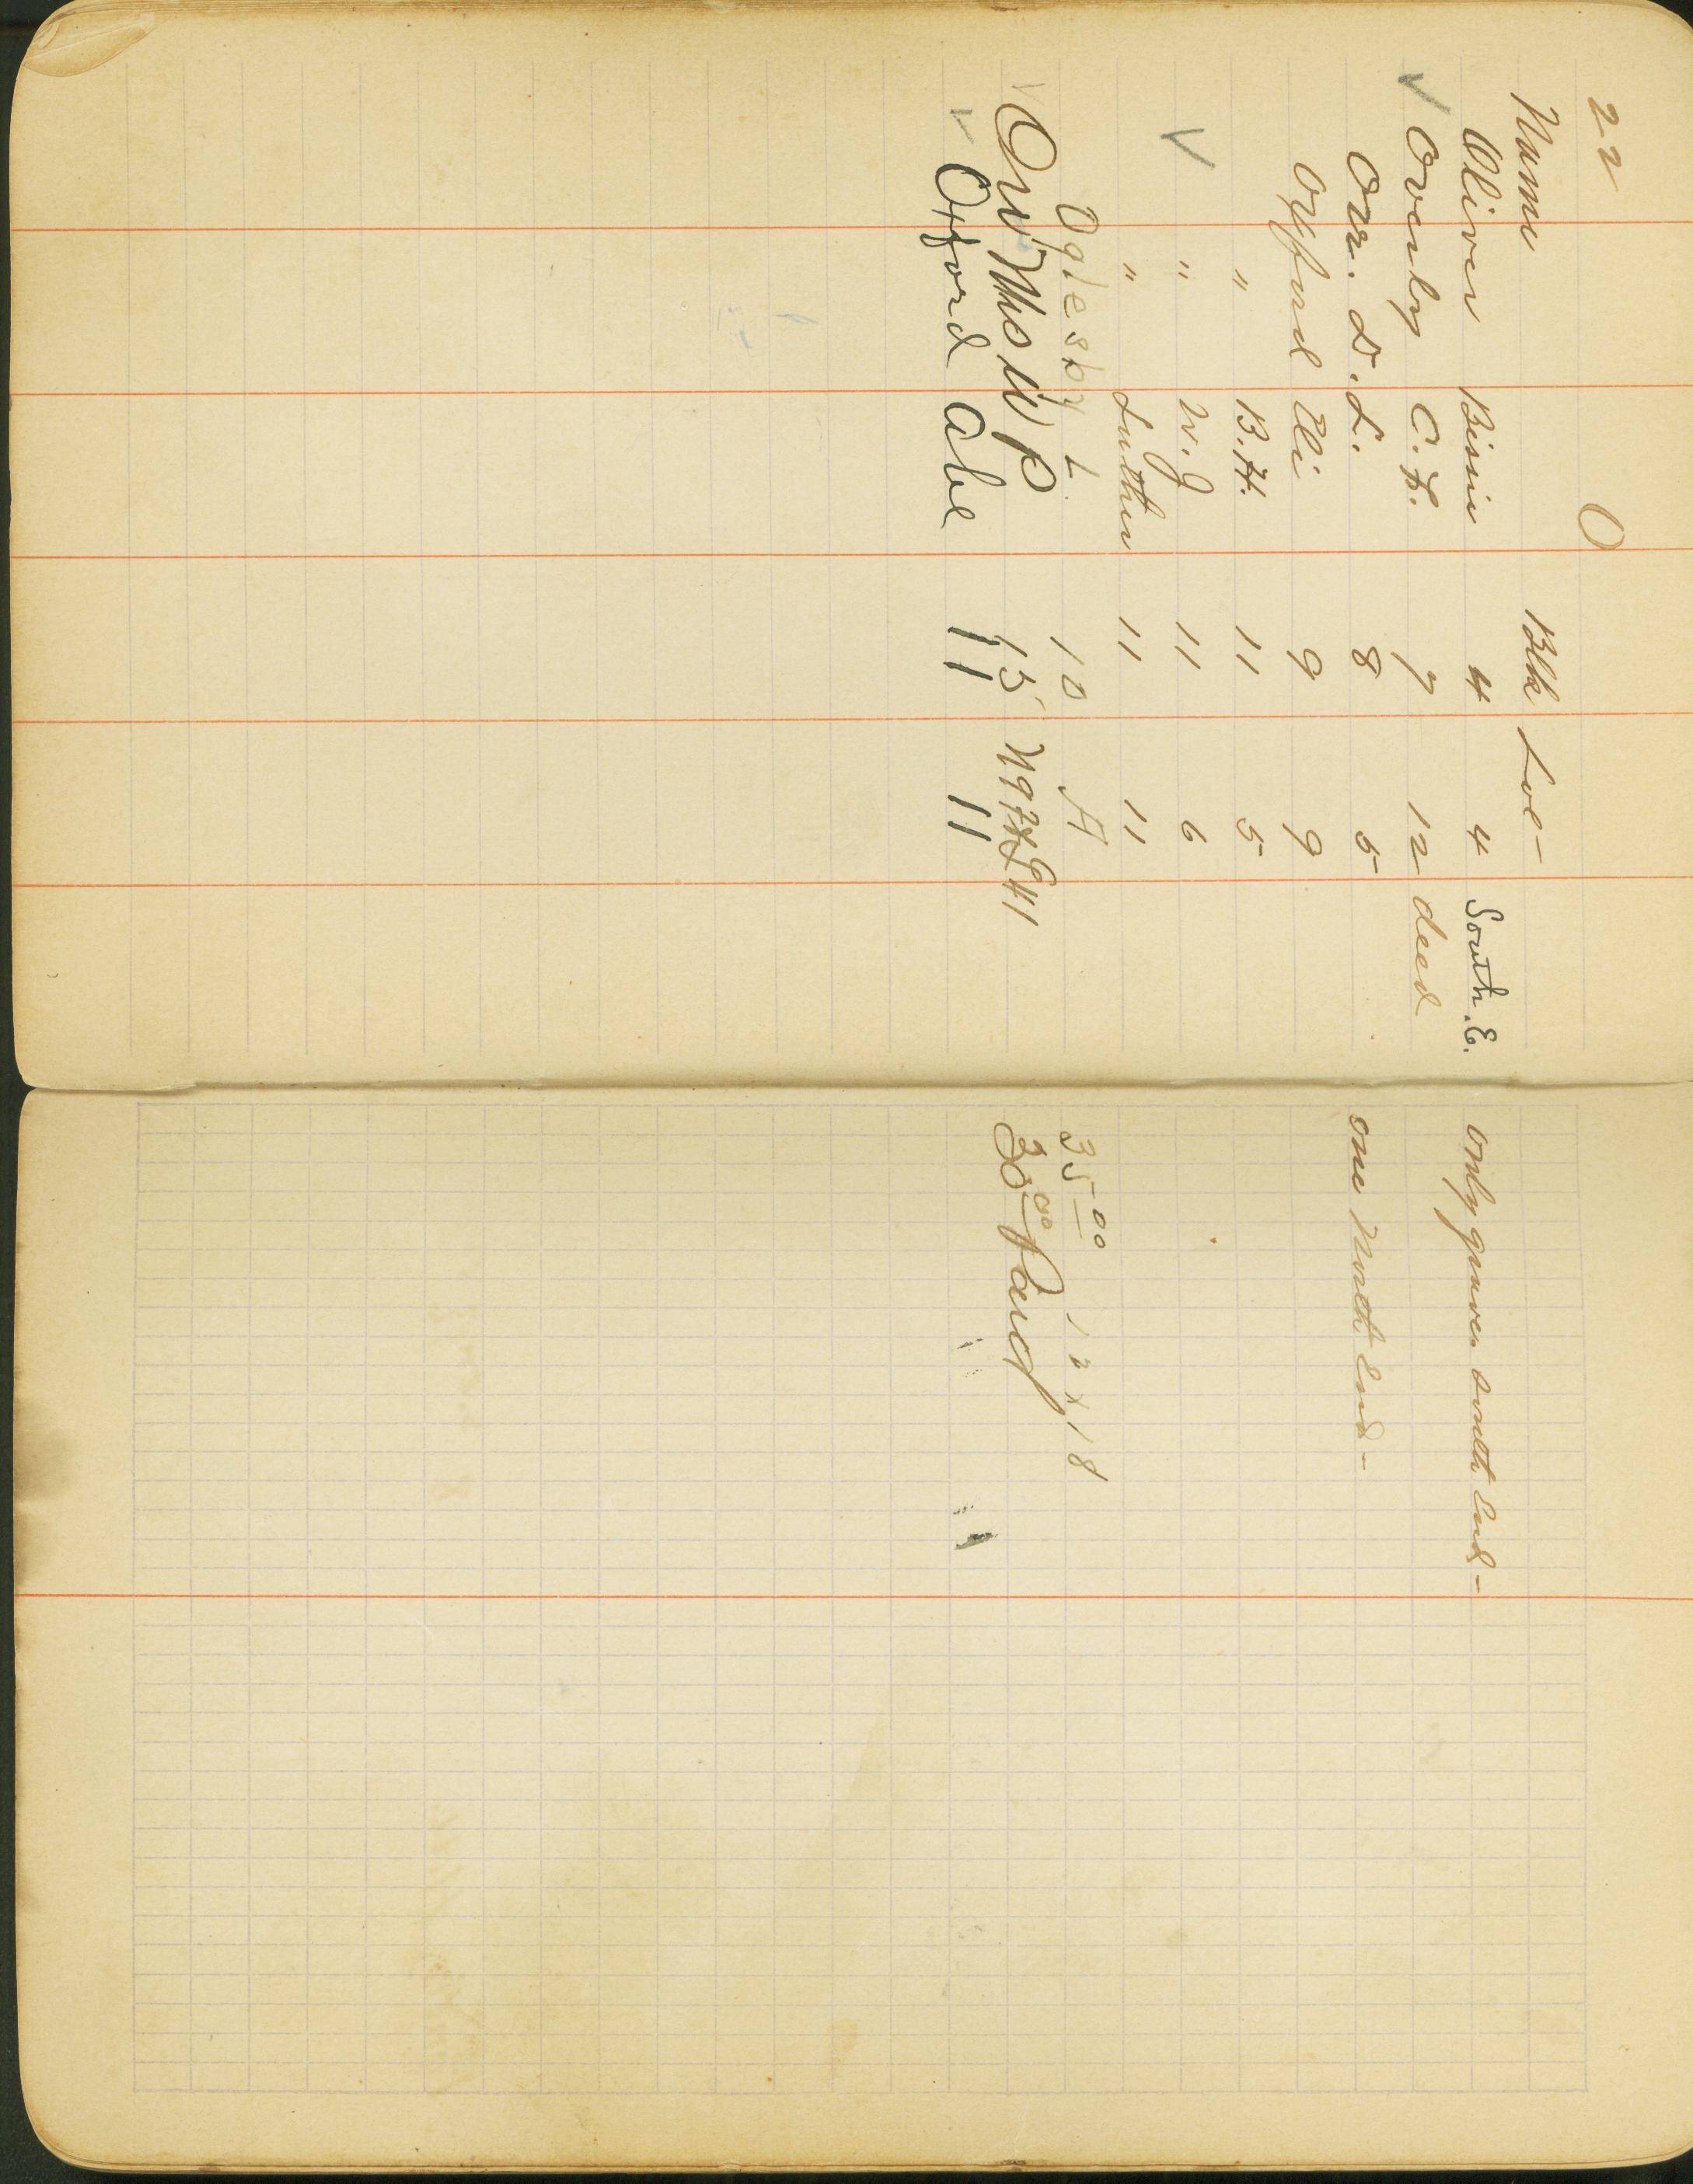 22 O
Name Blk Lot -
Oliver Bissie 4 4 South. E. only graves south End -
✓ Overby C. H. 7 12 deed
Orr. D. L. 8 5 one North End -
Oxford Eli 9 9
" B. H. 11 5
✓ " W. J 11 6
" Luther 11 11
Oglesby L. 10 A 35 00 12 x 18
✓ Orr Mrs W P 15 41 30 00 Paid
✓ Oxford Abe 11 11